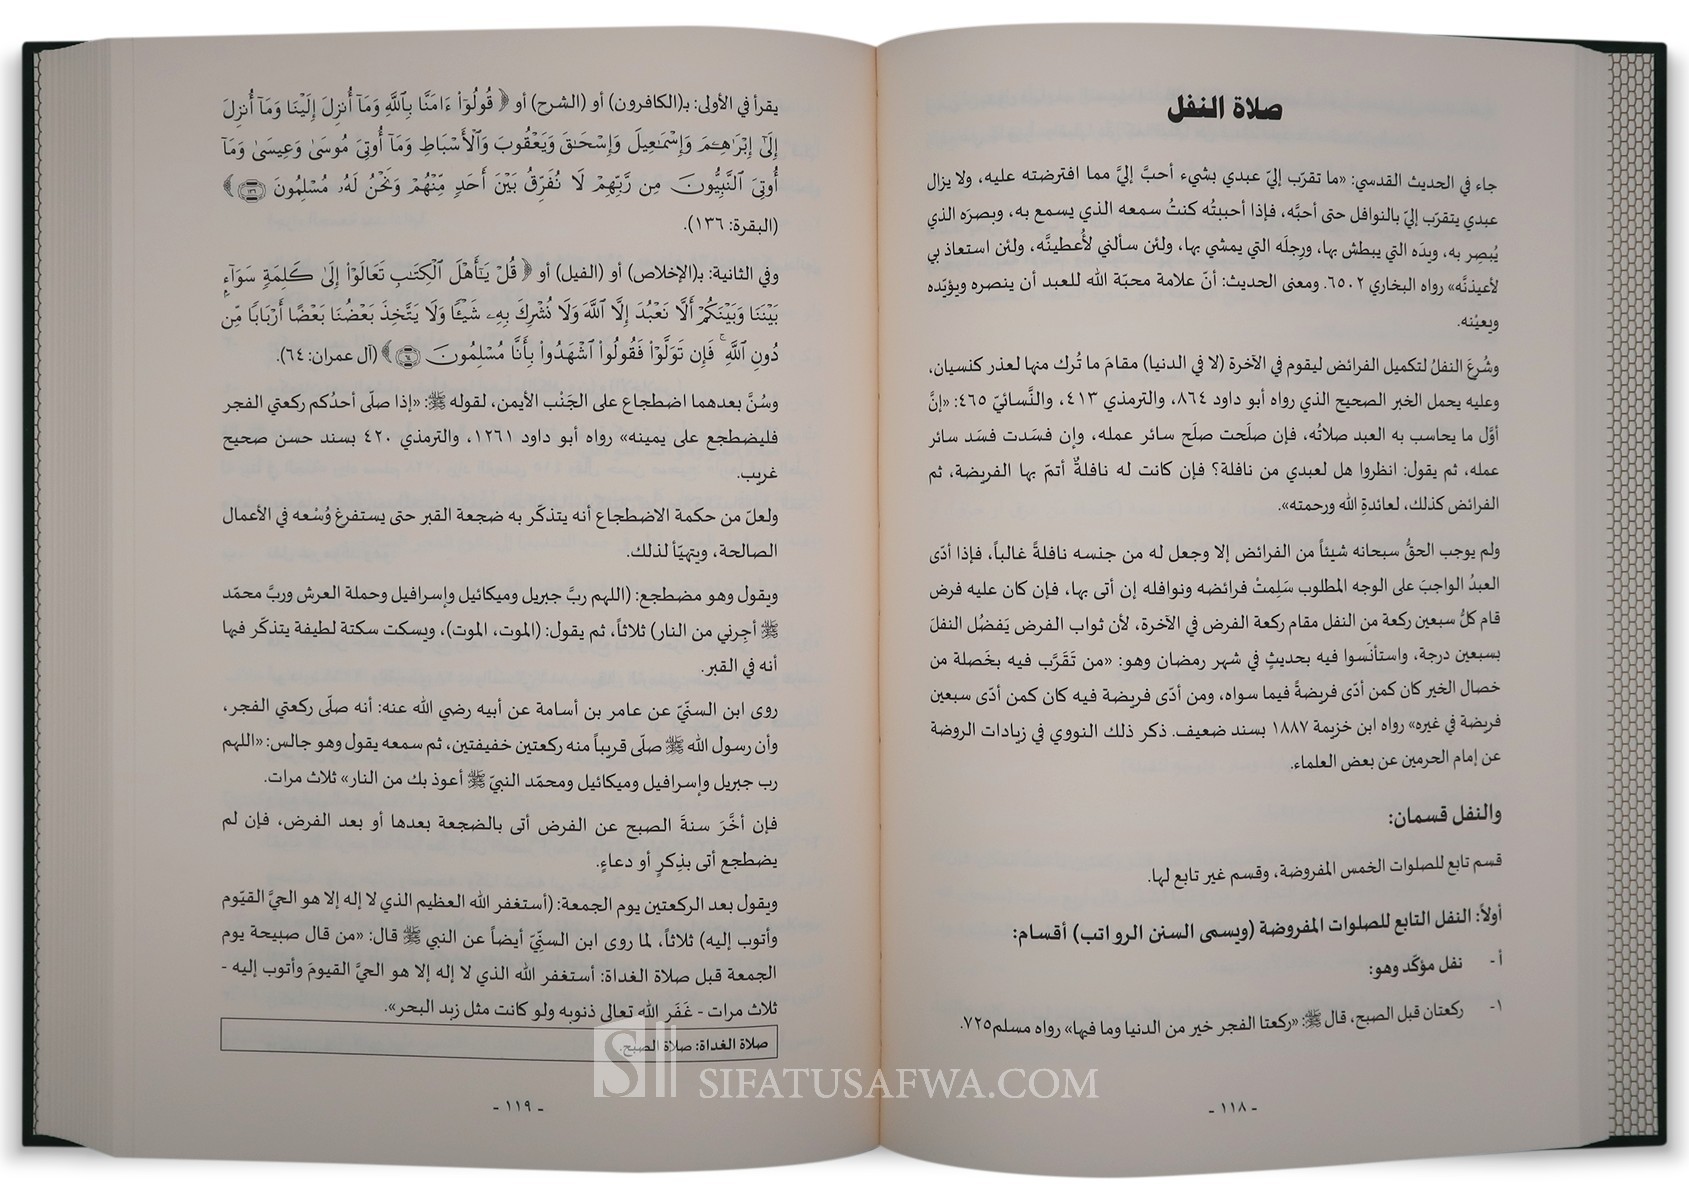 صلاة النفل
جاء في الحديث القدسي: «ما تقرّب إليّ عبدي بشيء أحبَّ إليَّ مما افترضته عليه، ولا يزال
عبدي يتقرّب إليّ بالنوافل حتى أحبَّه، فإذا أحببتُه كنتُ سمعه الذي يسمع به، وبصرَه الذي
يُبصِر به، ويدَه التي يبطش بها، ورِجلَه التي يمشي بها، ولئن سألني لأُعطينَّه، ولئن استعاذ بي
لأعيذنَّه» رواه البخاري ٦٥٠٢. ومعنى الحديث: أنّ علامة محبّة الله للعبد أن ينصره ويؤيّده
ويعيْنه.
وشُرعَ النفلُ لتكميل الفرائض ليقوم في الآخرة (لا في الدنيا) مقامَ ما تُرك منها لعذر كنسيان،
وعليه يحمل الخبر الصحيح الذي رواه أبو داود ٨٦٤، والترمذي ٤١٣، والنَّسائيّ ٤٦٥: «إنَّ
أوَّل ما يحاسب به العبد صلاتُه، فإن صلَحت صلَح سائر عمله، وإن فسَدت فسَد سائر
عمله، ثم يقول: انظروا هل لعبدي من نافلة؟ فإن كانت له نافلةٌ أتمّ بها الفريضة، ثم
الفرائض كذلك، لعائدةِ الله ورحمته».
ولم يوجب الحقُّ سبحانه شيئاً من الفرائض إلا وجعل له من جنسه نافلةً غالباً، فإذا أدّى
العبدُ الواجبَ على الوجه المطلوب سَلِمتْ فرائضه ونوافله إن أتى بها، فإن كان عليه فرض
قام كلُّ سبعين ركعة من النفل مقام ركعة الفرض في الآخرة، لأن ثواب الفرض يَفضُل النفلَ
بسبعين درجة، واستأنَسوا فيه بحديثٍ في شهر رمضان وهو: «من تَقَرَّب فيه بخَصلة من
خصال الخير كان كمن أدّى فريضةً فيما سواه، ومن أدّى فريضة فيه كان كمن أدّى سبعين
فريضة في غيره» رواه ابن خزيمة ١٨٨٧ بسند ضعيف. ذكر ذلك النووي في زيادات الروضة
عن إمام الحرمين عن بعض العلماء.
والنفل قسمان:
قسم تابع للصلوات الخمس المفروضة، وقسم غير تابع لها.
أولاً: النفل التابع للصلوات المفروضة (ويسمى السنن الرواتب) أقسام:
أ- نفل مؤكّد وهو:
١- ركعتان قبل الصبح، قال ﷺ: «ركعتا الفجر خير من الدنيا وما فيها» رواه مسلم٧٢٥.
- ١١٨ -
يقرأ في الأولى: بـ(الكافرون) أو (الشرح) أو ﴿ قُولُوٓا۟ ءَامَنَّا بِٱللَّهِ وَمَآ أُنزِلَ إِلَيْنَا وَمَآ أُنزِلَ
إِلَىٰٓ إِبْرَٰهِـۧمَ وَإِسْمَـٰعِيلَ وَإِسْحَـٰقَ وَيَعْقُوبَ وَٱلْأَسْبَاطِ وَمَآ أُوتِىَ مُوسَىٰ وَعِيسَىٰ وَمَآ
أُوتِىَ ٱلنَّبِيُّونَ مِن رَّبِّهِمْ لَا نُفَرِّقُ بَيْنَ أَحَدٍ مِّنْهُمْ وَنَحْنُ لَهُۥ مُسْلِمُونَ ١٣٦ ﴾
(البقرة: ١٣٦).
وفي الثانية: بـ(الإخلاص) أو (الفيل) أو ﴿ قُلْ يَـٰٓأَهْلَ ٱلْكِتَـٰبِ تَعَالَوْا۟ إِلَىٰ كَلِمَةٍ سَوَآءٍۭ
بَيْنَنَا وَبَيْنَكُمْ أَلَّا نَعْبُدَ إِلَّا ٱللَّهَ وَلَا نُشْرِكَ بِهِۦ شَيْـًٔا وَلَا يَتَّخِذَ بَعْضُنَا بَعْضًا أَرْبَابًا مِّن
دُونِ ٱللَّهِ ۚ فَإِن تَوَلَّوْا۟ فَقُولُوا۟ ٱشْهَدُوا۟ بِأَنَّا مُسْلِمُونَ ٦٤ ﴾ (آل عمران: ٦٤).
وسُنَّ بعدهما اضطجاع على الجَنْب الأيمن، لقوله ﷺ: «إذا صلّى أحدُكم ركعتي الفجر
فليضطجع على يمينه» رواه أبو داود ١٢٦١، والترمذي ٤٢٠ بسند حسن صحيح
غريب.
ولعلّ من حكمة الاضطجاع أنه يتذكّر به ضجعة القبر حتى يستفرغ وُسْعه في الأعمال
الصالحة، ويتهيّأ لذلك.
ويقول وهو مضطجع: (اللهم ربَّ جبريل وميكائيل وإسرافيل وحملة العرش وربَّ محمّد
ﷺ أجِرني من النار) ثلاثاً، ثم يقول: (الموت، الموت)، ويسكت سكتة لطيفة يتذكّر فيها
أنه في القبر.
روى ابن السنّيّ عن عامر بن أسامة عن أبيه رضي الله عنه: أنه صلّى ركعتي الفجر،
وأن رسول الله ﷺ صلّى قريباً منه ركعتين خفيفتين، ثم سمعه يقول وهو جالس: «اللهم
رب جبريل وإسرافيل وميكائيل ومحمّد النبيّ ﷺ أعوذ بك من النار» ثلاث مرات.
فإن أخَّرَ سنةَ الصبح عن الفرض أتى بالضجعة بعدها أو بعد الفرض، فإن لم
يضطجع أتى بذِكرٍ أو دعاءٍ.
ويقول بعد الركعتين يوم الجمعة: (أستغفر الله العظيم الذي لا إله إلا هو الحيَّ القيّوم
وأتوب إليه) ثلاثاً، لما روى ابن السنِّيّ أيضاً عن النبي ﷺ قال: «من قال صبيحة يوم
الجمعة قبل صلاة الغداة: أستغفر الله الذي لا إله إلا هو الحيَّ القيومَ وأتوب إليه -
ثلاث مرات - غَفَر الله تعالى ذنوبه ولو كانت مثل زبد البحر».
صلاة الغداة: صلاة الصبح.
- ١١٩ -
SIFATUSAFWA.COM